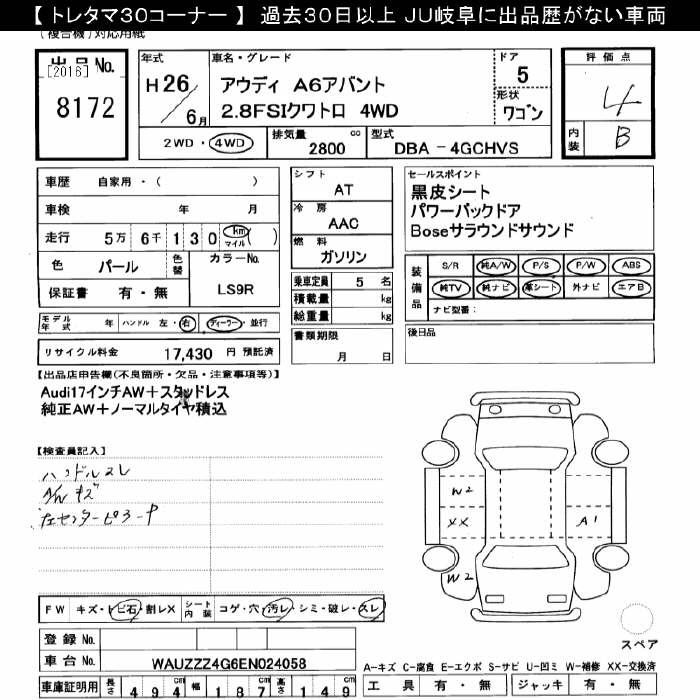 【 トレタマ30コーナー 】 過去30日以上 JU岐阜に出品歴がない車両
(複合機)対応用紙
出品No.
[2016]
8172
年式
H26
6月
車名・グレード
アウディ A6アバント
2.8FSIクワトロ 4WD
ドア
5
形状
ワゴン
評価点
4
内装
B
2WD・4WD
排気量
2800
cc
型式
DBA - 4GCHVS
車歴 自家用・( )
車検 年 月
走行 5万 6千 1 3 0 km マイル ( )
色 パール 色替 カラーNo.
保証書 有・無 LS9R
シフト
AT
冷房
AAC
燃料
ガソリン
乗車定員 5 名
積載量 kg
総重量 kg
書類期限
月 日
セールスポイント
黒皮シート
パワーバックドア
Boseサラウンドサウンド
装備品
S/R 純A/W P/S P/W ABS
純TV 純ナビ 革シート 外ナビ エアB
ナビ型番:
後日品
モデル年式 年 ハンドル 左・右 ディーラー・並行
リサイクル料金 17,430 円 預託済
【出品店申告欄(不良箇所・欠品・注意事項等)】
Audi17インチAW+スタッドレス
純正AW+ノーマルタイヤ積込
【検査員記入】
ハンドルスレ
A/Wキズ
左センターピラーヤ
W2
XX
W2
A1
FW キズ・トビ石・割レX シート内装 コゲ・穴・汚レ・シミ・破レ・スレ
スペア
登録No.
車台No. WAUZZZ4G6EN024058
A-キズ C-腐食 E-エクボ S-サビ U-凹ミ W-補修 XX-交換済
車庫証明用 長さ 494cm 幅 187cm 高さ 149cm
工具 有・無 ジャッキ 有・無